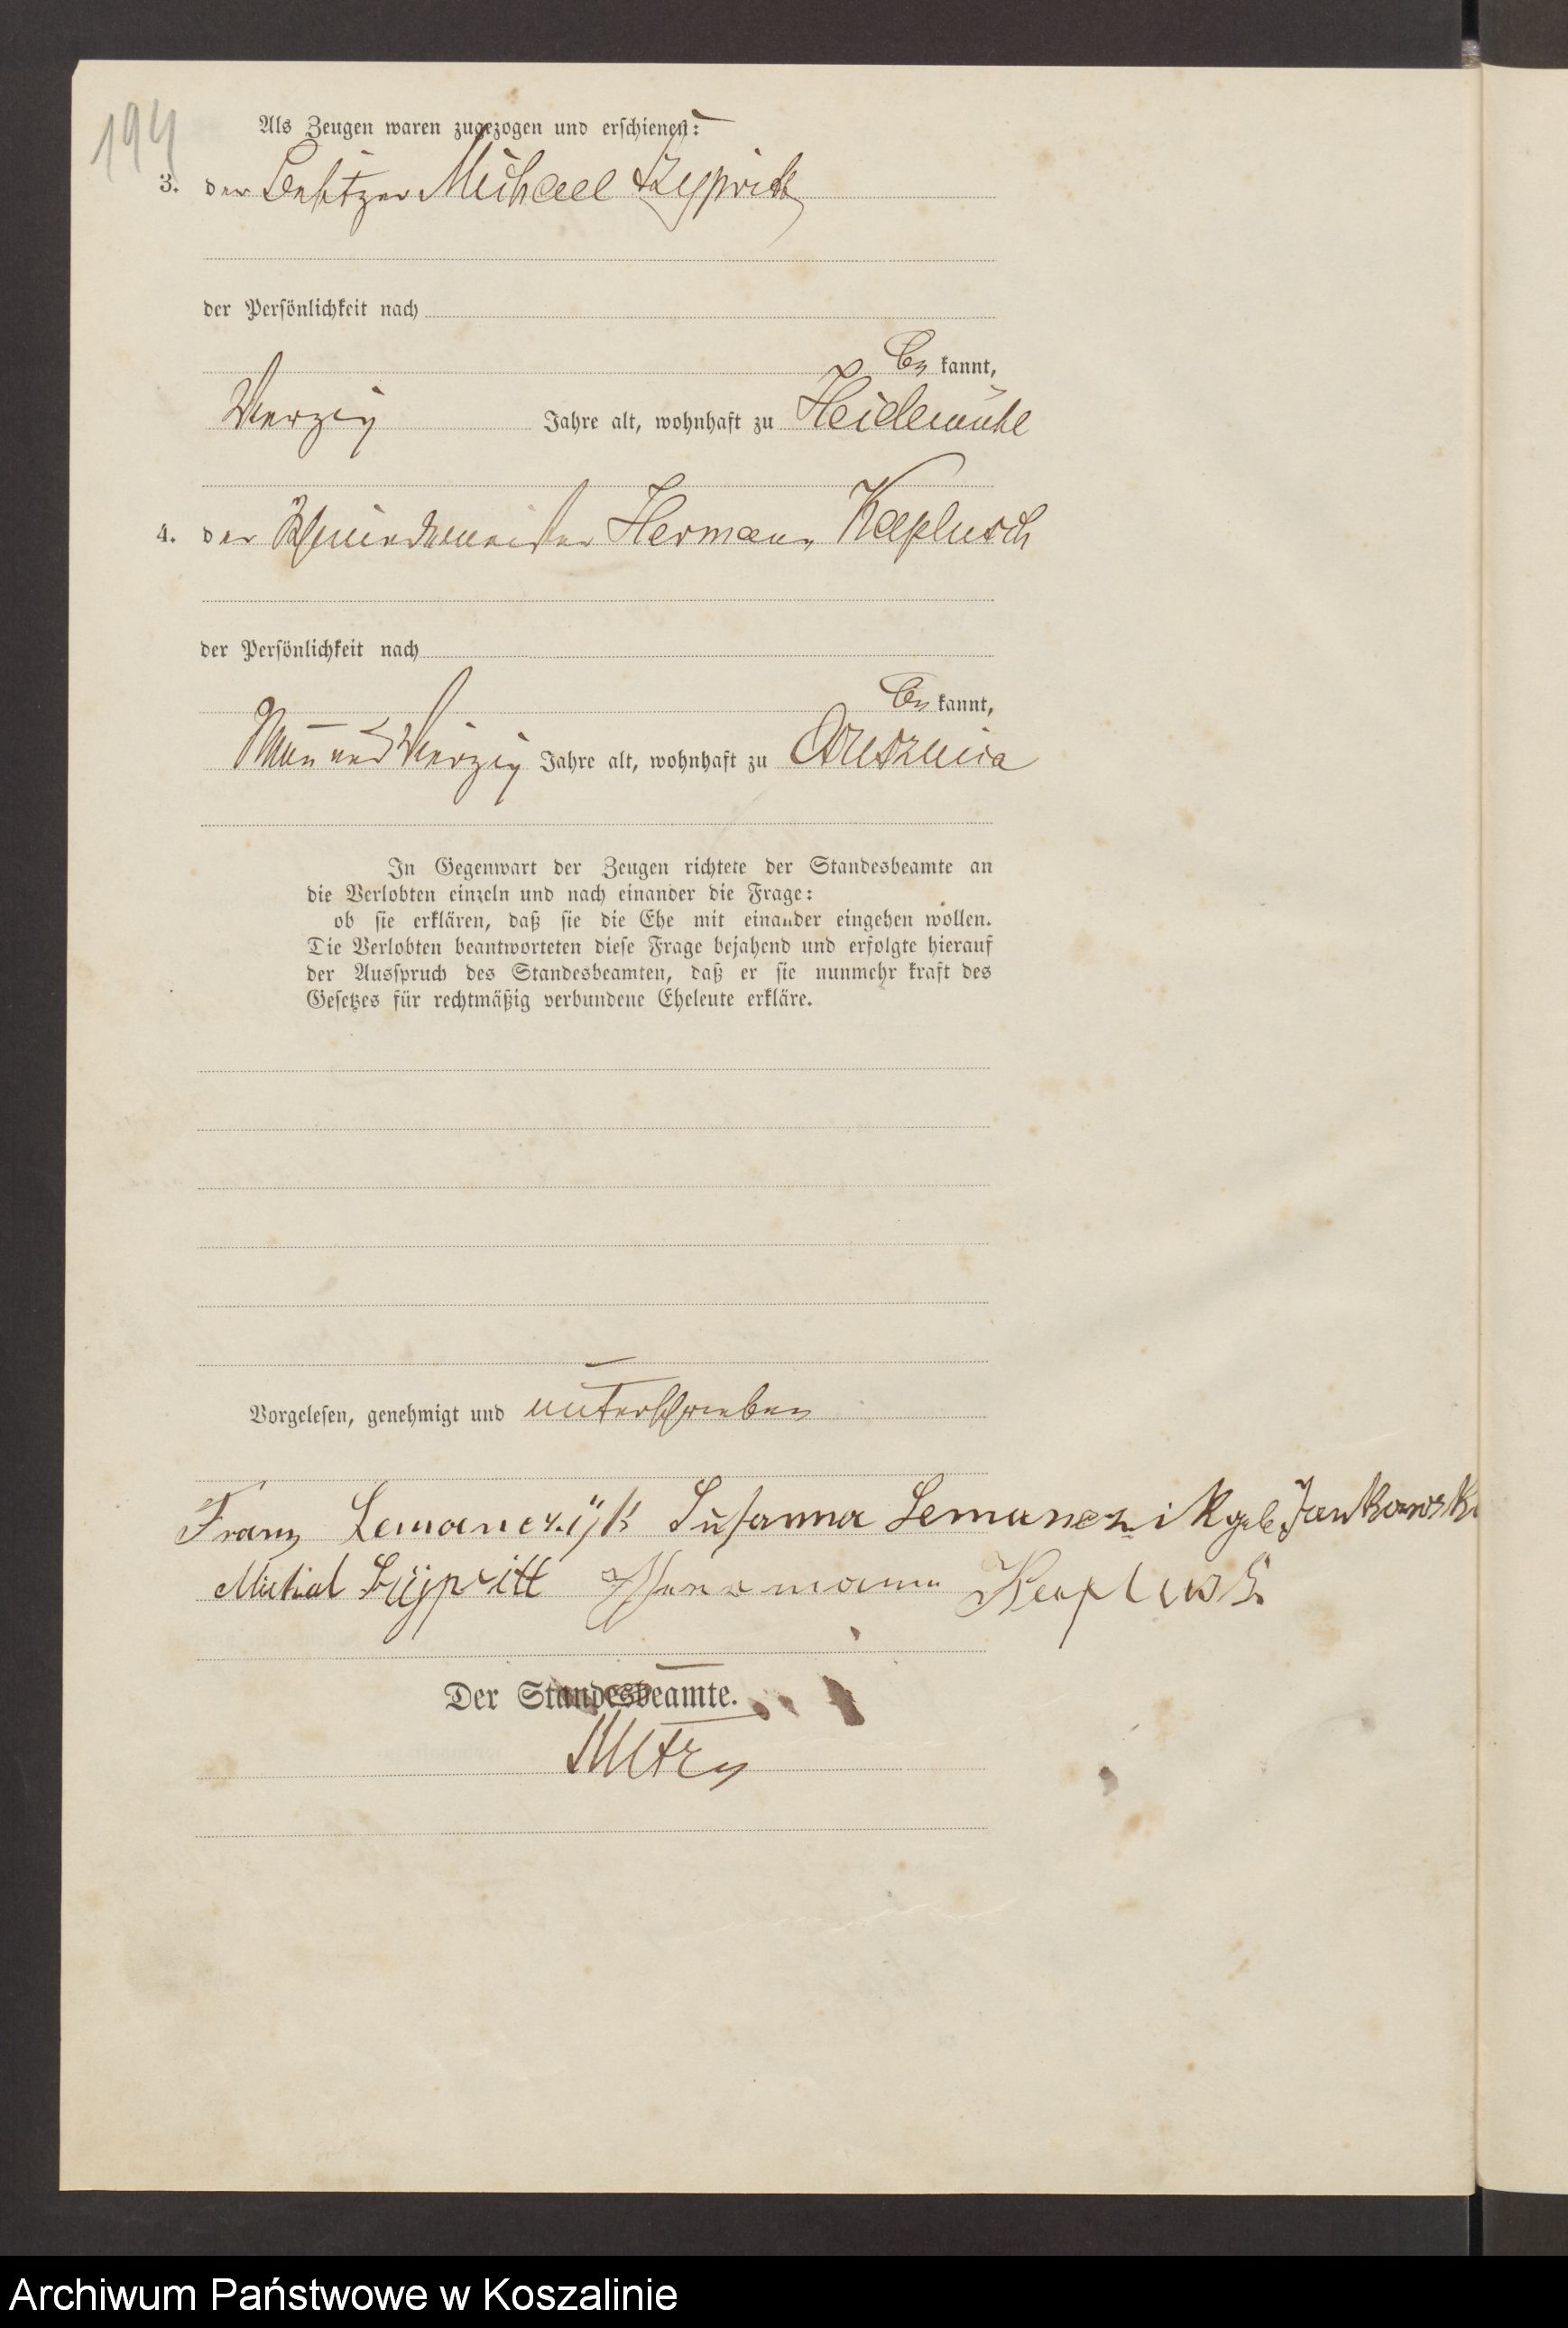 194
Als Zeugen waren zugezogen und erschienen:
3. der Besitzer Michael
der Persönlichkeit nach
be kannt,
vierzig Jahre alt, wohnhaft zu Heidemühl
4. der Schmiedemeister Hermann Kaplusch
der Persönlichkeit nach
be kannt,
neun und vierzig Jahre alt, wohnhaft zu
In Gegenwart der Zeugen richtete der Standesbeamte an
die Verlobten einzeln und nach einander die Frage:
ob sie erklären, daß sie die Ehe mit einander eingehen wollen.
Die Verlobten beantworteten diese Frage bejahend und erfolgte hierauf
der Ausspruch des Standesbeamten, daß er sie nunmehr kraft des
Gesetzes für rechtmäßig verbundene Eheleute erkläre.
Vorgelesen, genehmigt und unterschrieben
Franz Lemanczÿk Susanna Lemanczik geb Jankowski
Hermann
Der Standesbeamte.
Archiwum Państwowe w Koszalinie